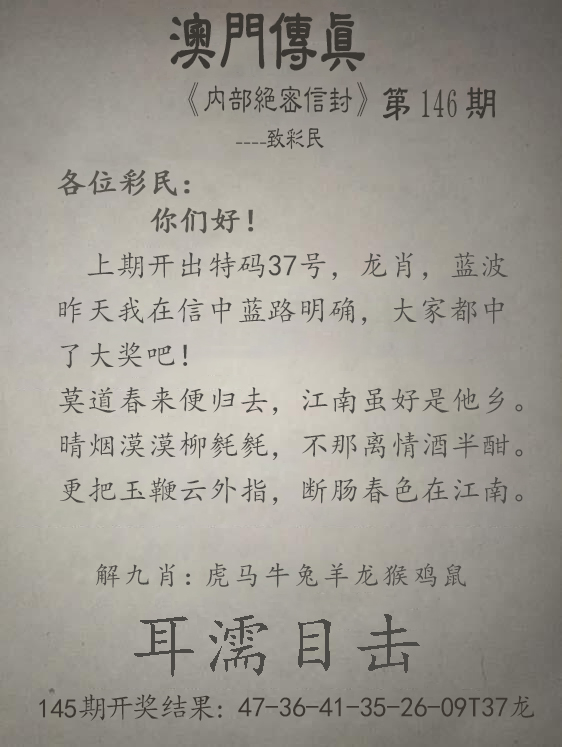 澳門傳眞
《内部絕密信封》第146期
----致彩民
各位彩民：
你们好！
上期开出特码37号，龙肖，蓝波
昨天我在信中蓝路明确，大家都中
了大奖吧！
莫道春来便归去，江南虽好是他乡。
晴烟漠漠柳毿毿，不那离情酒半酣。
更把玉鞭云外指，断肠春色在江南。
解九肖：虎马牛兔羊龙猴鸡鼠
耳濡目击
145期开奖结果：47-36-41-35-26-09T37龙